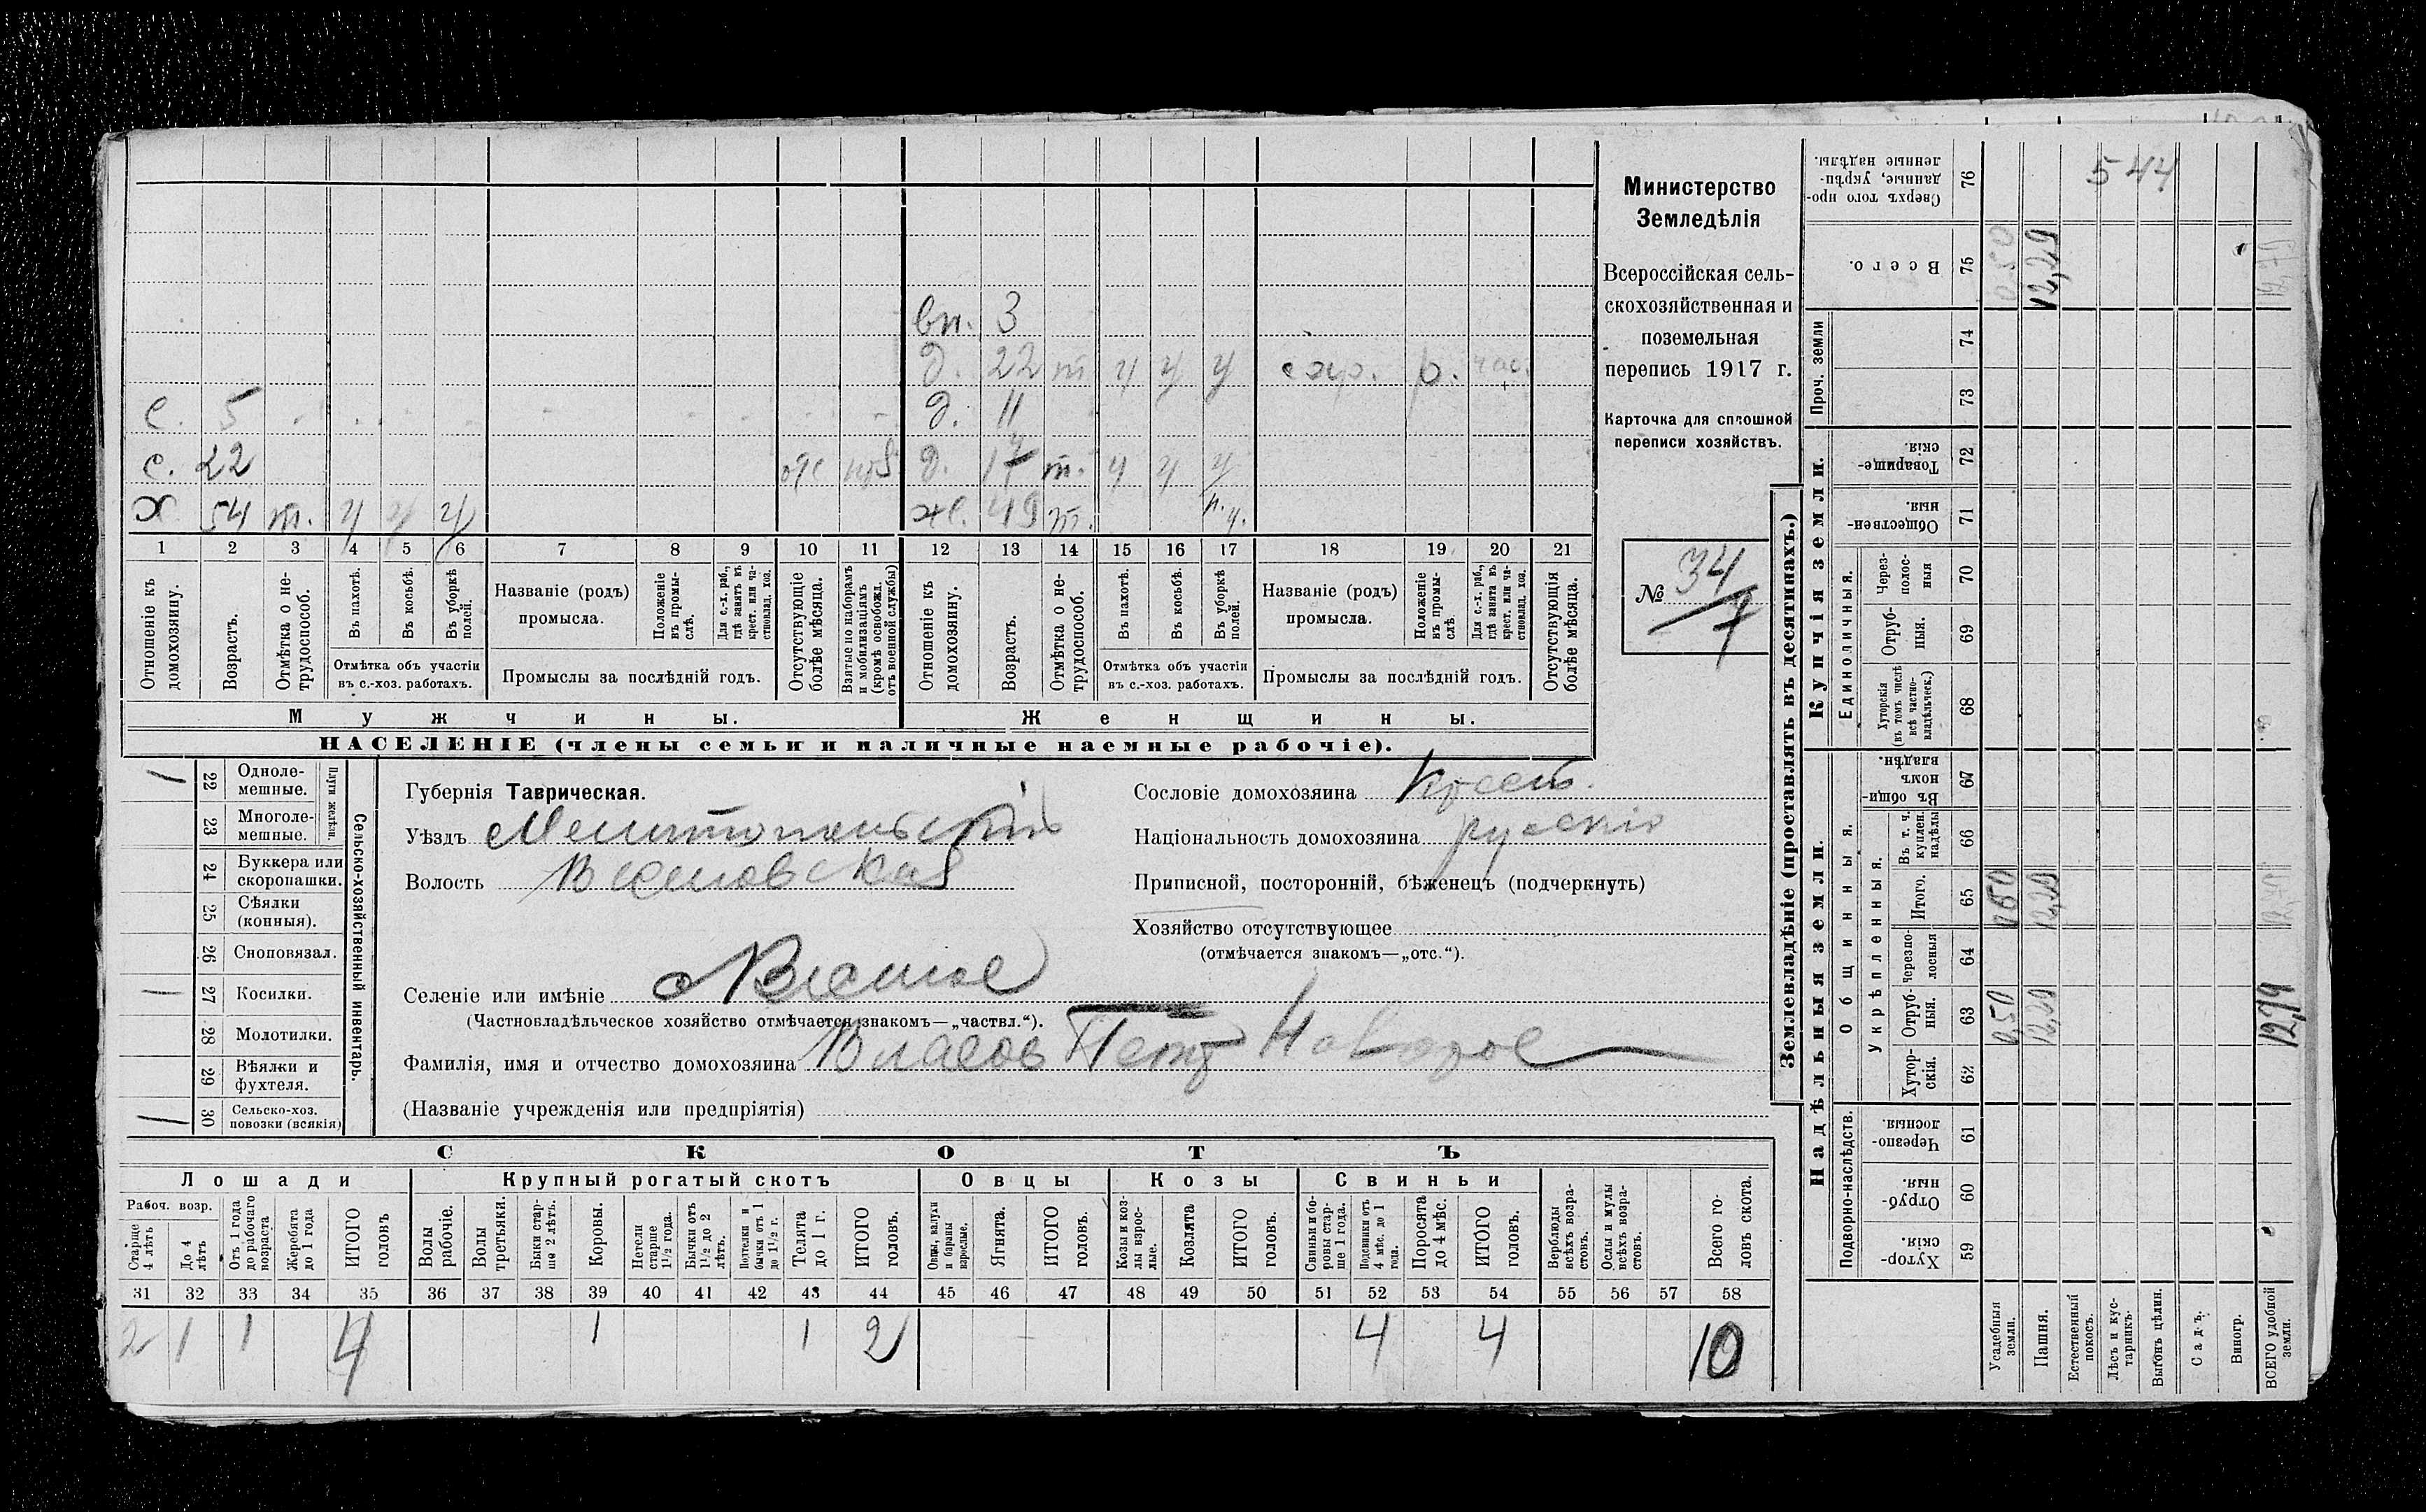 Министерство
Земледѣлія
Всероссійская сель-
скохозяйственная и
поземельная
перепись 1917 г.
Карточка для сплошной
переписи хозяйствъ.
№ 34/7
вп. 3
д. 22 т ч ч ч р. час.
с. 5 д. 11
с. 22 отс д. 17 т. ч ч ч
х 54 т. ч ч ч ж. 49 т. ч.
1 2 3 4 5 6 7 8 9 10 11 12 13 14 15 16 17 18 19 20 21
Отношеніе къ домохозяину.
Возрастъ.
Отмѣтка о не-трудоспособ.
Въ пахотѣ.
Въ косьбѣ.
Въ уборкѣ полей.
Отмѣтка объ участіи
въ с.-хоз. работахъ.
Названіе (родъ)
промысла.
Положеніе въ промы-слѣ.
Для с.-х. раб., гдѣ занятъ въ крест. или ча-стновлад. хоз.
Промыслы за послѣдній годъ.
Отсутствующіе болѣе мѣсяца.
Взятые по наборамъ и мобилизаціямъ (кромѣ освобожд. отъ военной службы)
Отношеніе къ домохозяину.
Возрастъ.
Отмѣтка о не-трудоспособ.
Въ пахотѣ.
Въ косьбѣ.
Въ уборкѣ полей.
Отмѣтка объ участіи
въ с.-хоз. работахъ.
Названіе (родъ)
промысла.
Положеніе въ промы-слѣ.
Для с.-х. раб., гдѣ занята въ крест. или ча-стновлад. хоз.
Промыслы за послѣдній годъ.
Отсутствующія болѣе мѣсяца.
Мужчины.
Женщины.
НАСЕЛЕНІЕ (члены семьи и наличные наемные рабочіе).
Сельско-хозяйственный инвентарь.
Плуги желѣзн.
22 Одноле-мешные. 1
23 Многоле-мешные.
24 Буккера или скоропашки.
25 Сѣялки (конныя).
26 Сноповязал.
27 Косилки. 1
28 Молотилки.
29 Вѣялки и фухтеля.
30 Сельско-хоз. повозки (всякія) 1
Губернія Таврическая.
Уѣздъ Мелитопольскій
Волость Веселовская
Селеніе или имѣніе Веселое
(Частновладѣльческое хозяйство отмѣчается знакомъ—„частвл.“).
Фамилія, имя и отчество домохозяина Власов Петр
(Названіе учрежденія или предпріятія)
Сословіе домохозяина крест.
Національность домохозяина русскій
Приписной, посторонній, бѣженецъ (подчеркнуть)
Хозяйство отсутствующее
(отмѣчается знакомъ—„отс.“).
СКОТЪ
Лошади
Крупный рогатый скотъ
Овцы
Козы
Свиньи
Рабоч. возр.
Старше 4 лѣтъ
До 4 лѣтъ
Отъ 1 года до рабочаго возраста
Жеребята до 1 года
ИТОГО головъ
Волы рабочіе.
Волы третьяки.
Быки стар-ше 2 лѣтъ.
Коровы.
Нетели старше 1½ года.
Бычки отъ 1½ до 2 лѣтъ.
Телята до 1 г.
ИТОГО головъ.
Ягнята.
ИТОГО головъ.
Козы и коз-лы взрос-лые.
Козлята
ИТОГО головъ.
Свиньи и бо-ровы стар-ше 1 года.
Подсвинки отъ 4 мѣс. до 1 года.
Поросята до 4 мѣс.
ИТОГО головъ.
Верблюды всѣхъ возра-стовъ.
Ослы и мулы всѣхъ возра-стовъ.
Всего го-ловъ скота.
31 32 33 34 35 36 37 38 39 40 41 42 43 44 45 46 47 48 49 50 51 52 53 54 55 56 57 58
2 1 1 4 1 1 2 4 4 10
Землевладѣніе (проставлять въ десятинахъ.)
Надѣльныя земли.
Купчія земли.
Проч. земли
Подворно-наслѣдств.
Общинныя.
Укрѣпленныя.
Единоличныя.
76 Сверхъ того про-данные, укрѣп-ленные надѣлы. 544
75 Всего. 0.50 12,29 12,79
74
73
72 Товарище-скія.
71 Обществен-ныя.
70 Через-полос-ныя
69 Отруб-ныя.
68 Хуторскія (въ томъ числѣ всѣ частно-владѣльческ.)
67 Въ общи-номъ владѣн.
66 Въ т. ч. куплен. надѣлы
65 Итого. 0.50 12,29 12,79
64 Черезпо-лосныя
63 Отруб-ныя. 0.50 12,29 12,79
62 Хутор-скія.
61 Черезпо-лосныя.
60 Отруб-ныя.
59 Хутор-скія.
Усадебныя земли.
Пашня.
Естественный покосъ.
Лѣсъ и кус-тарникъ.
Выгонъ цѣлин.
Садъ.
Виногр.
ВСЕГО удобной земли.